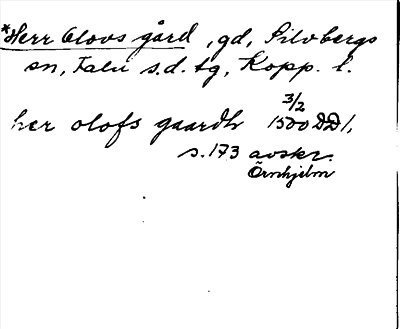 *Herr Olovs gård, gd, Silvbergs
sn, Falu s.d. tg, Kopp. l.
her olofs gaardh 3/2 1500 DD 1,
s. 173 avskr.
Örnhjelm